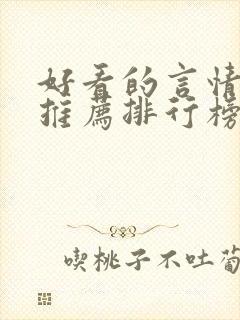 好看的言情
推薦排行榜
喫桃子不吐葡